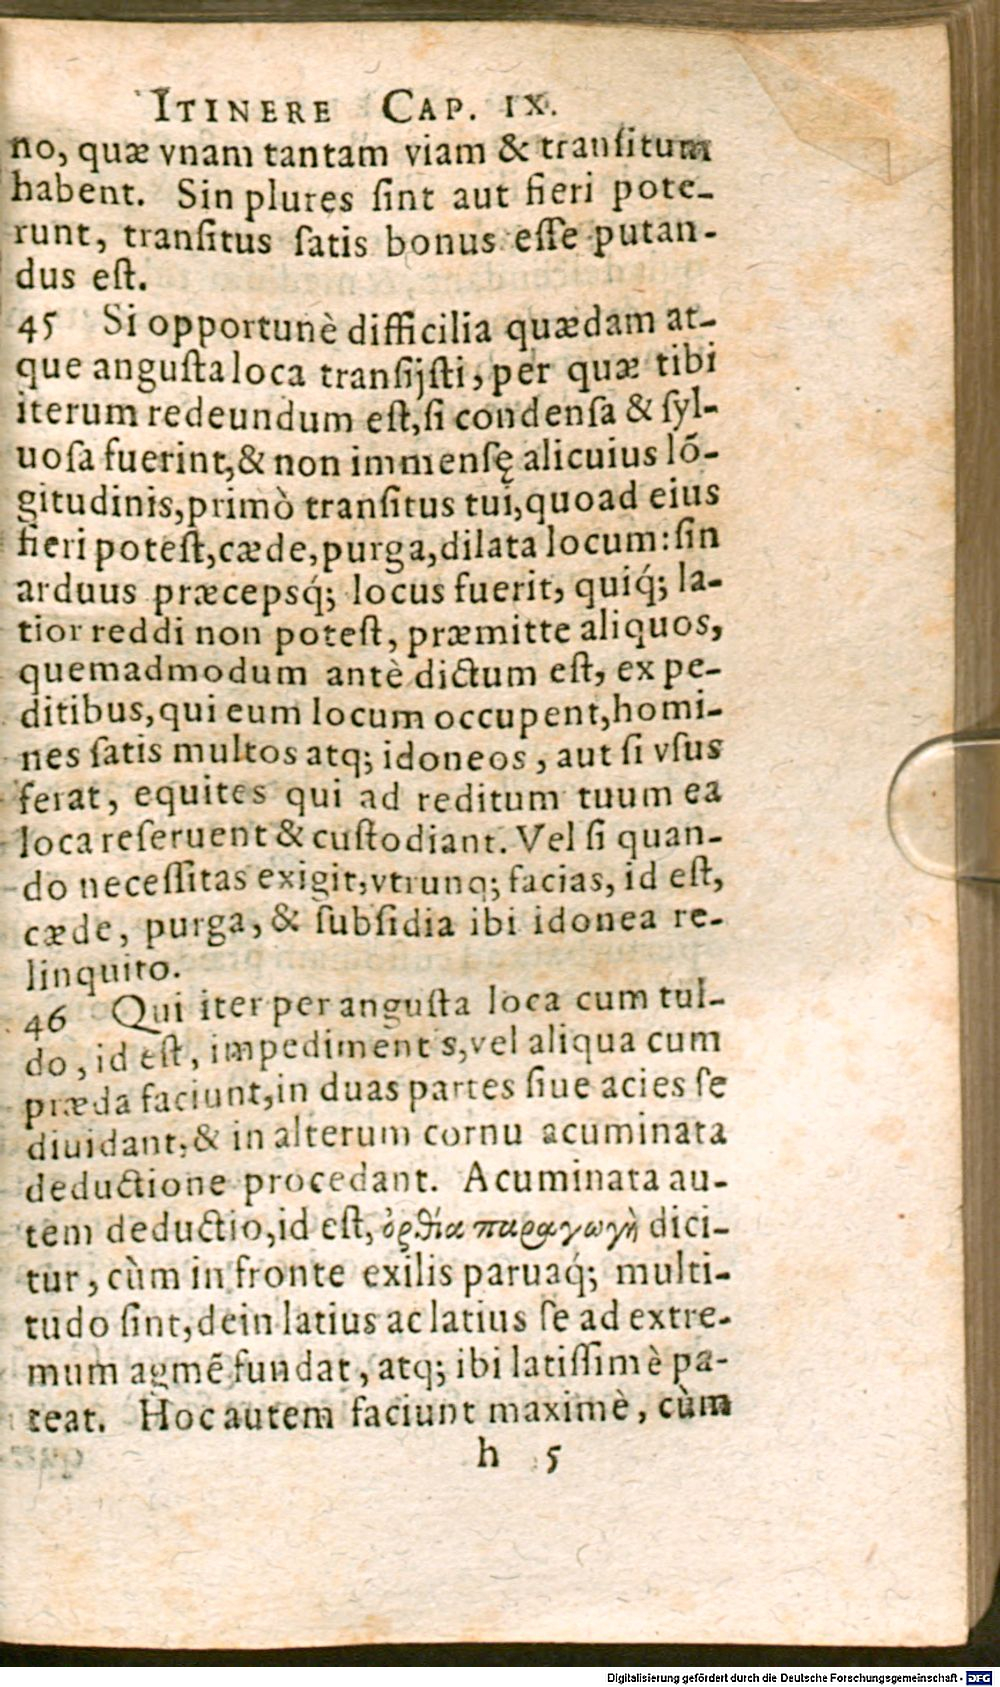 ITINERE CAP. IX.
no, quæ vnam tantam viam & tranſitum
habent. Sin plures ſint aut fieri pote-
runt, tranſitus ſatis bonus eſſe putan-
dus eſt.
45 Si opportunè difficilia quædam at-
que anguſta loca tranſijſti, per quæ tibi
iterum redeundum eſt, ſi condenſa & ſyl-
uoſa fuerint, & non immenſę alicuius lō-
gitudinis, primò tranſitus tui, quoad eius
fieri poteſt, cæde, purga, dilata locum: ſin
arduus præcepsq́; locus fuerit, quiq́; la-
tior reddi non poteſt, præmitte aliquos,
quemadmodum antè dictum eſt, ex pe-
ditibus, qui eum locum occupent, homi-
nes ſatis multos atq; idoneos, aut ſi vſus
ferat, equites qui ad reditum tuum ea
loca reſeruent & cuſtodiant. Vel ſi quan-
do neceſſitas exigit, vtrunq; facias, id eſt,
cæde, purga, & ſubſidia ibi idonea re-
linquito.
46 Qui iter per anguſta loca cum tul-
do, id eſt, impediment s, vel aliqua cum
præda faciunt, in duas partes ſiue acies ſe
diuidant, & in alterum cornu acuminata
deductione procedant. Acuminata au-
tem deductio, id eſt, ὀρθία παραγωγὴ dici-
tur, cùm in fronte exilis paruaq́; multi-
tudo ſint, dein latius ac latius ſe ad extre-
mum agmē fundat, atq; ibi latiſſimè pa-
teat. Hoc autem faciunt maximè, cùm
h 5
Digitalisierung gefördert durch die Deutsche Forschungsgemeinschaft - DFG